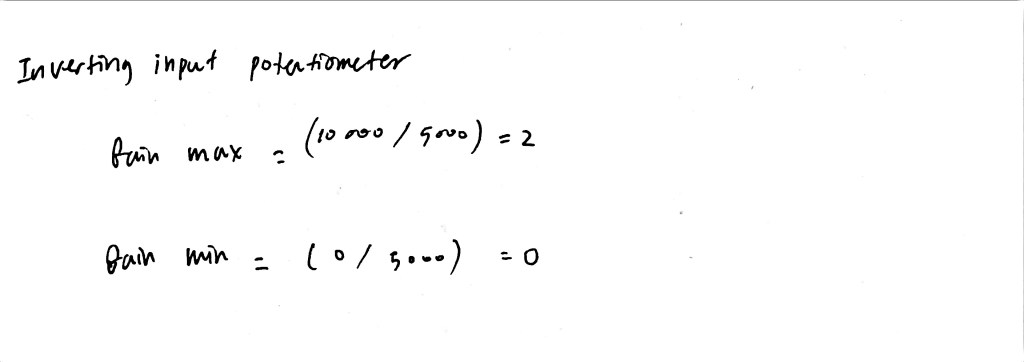 Inverting input potentiometer
Gain max = (10 000 / 5000) = 2
Gain min = (0 / 5000) = 0